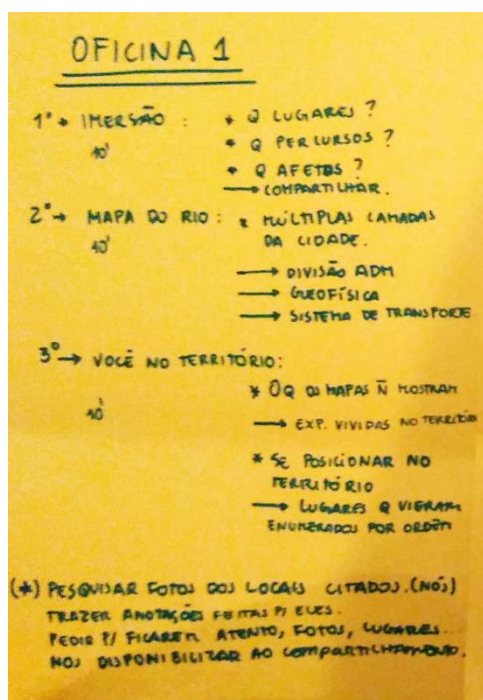 OFICINA 1
1° → IMERSÃO : * Q LUGARES ?
10' * Q PERCURSOS ?
* Q AFETOS ?
→ COMPARTILHAR.
2° → MAPA DO RIO : * MÚLTIPLAS CAMADAS
10' DA CIDADE.
→ DIVISÃO ADM
→ GEOFÍSICA
→ SISTEMA DE TRANSPORTE
3° → VOCÊ NO TERRITÓRIO:
* OQ OS MAPAS Ñ MOSTRAM
10' → EXP. VIVIDAS NO TERRITÓRIO
* SE POSICIONAR NO
TERRITÓRIO
→ LUGARES Q VIERAM
ENUMERADOS POR ORDEM
(*) PESQUISAR FOTOS DOS LOCAIS CITADOS. (NÓS)
TRAZER ANOTAÇÕES FEITAS P/ ELES.
PEDIR P/ FICAREM ATENTO, FOTOS, LUGARES...
NOS DISPONIBILIZAR AO COMPARTILHAMENTO.